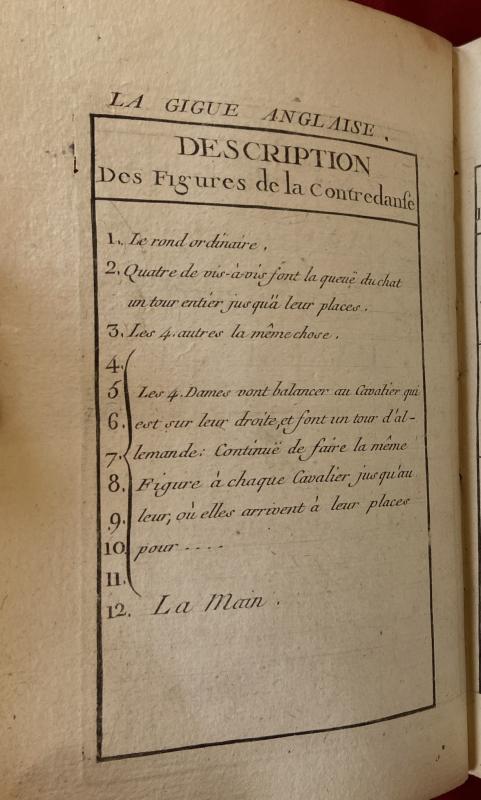 LA GIGUE ANGLAISE.
DESCRIPTION
Des Figures de la Contredanſe
1. Le rond ordinaire.
2. Quatre de vis-à-vis font la queuë du chat
un tour entier jusqu'à leur places.
3. Les 4. autres la même chose.
4.
5 Les 4. Dames vont balancer au Cavalier qui
6. est sur leur droite, et font un tour d'al-
7. lemande: Continuë de faire la même
8. Figure à chaque Cavalier jusqu'au
9. leur, où elles arrivent à leur places
10. pour ....
11.
12. La Main.